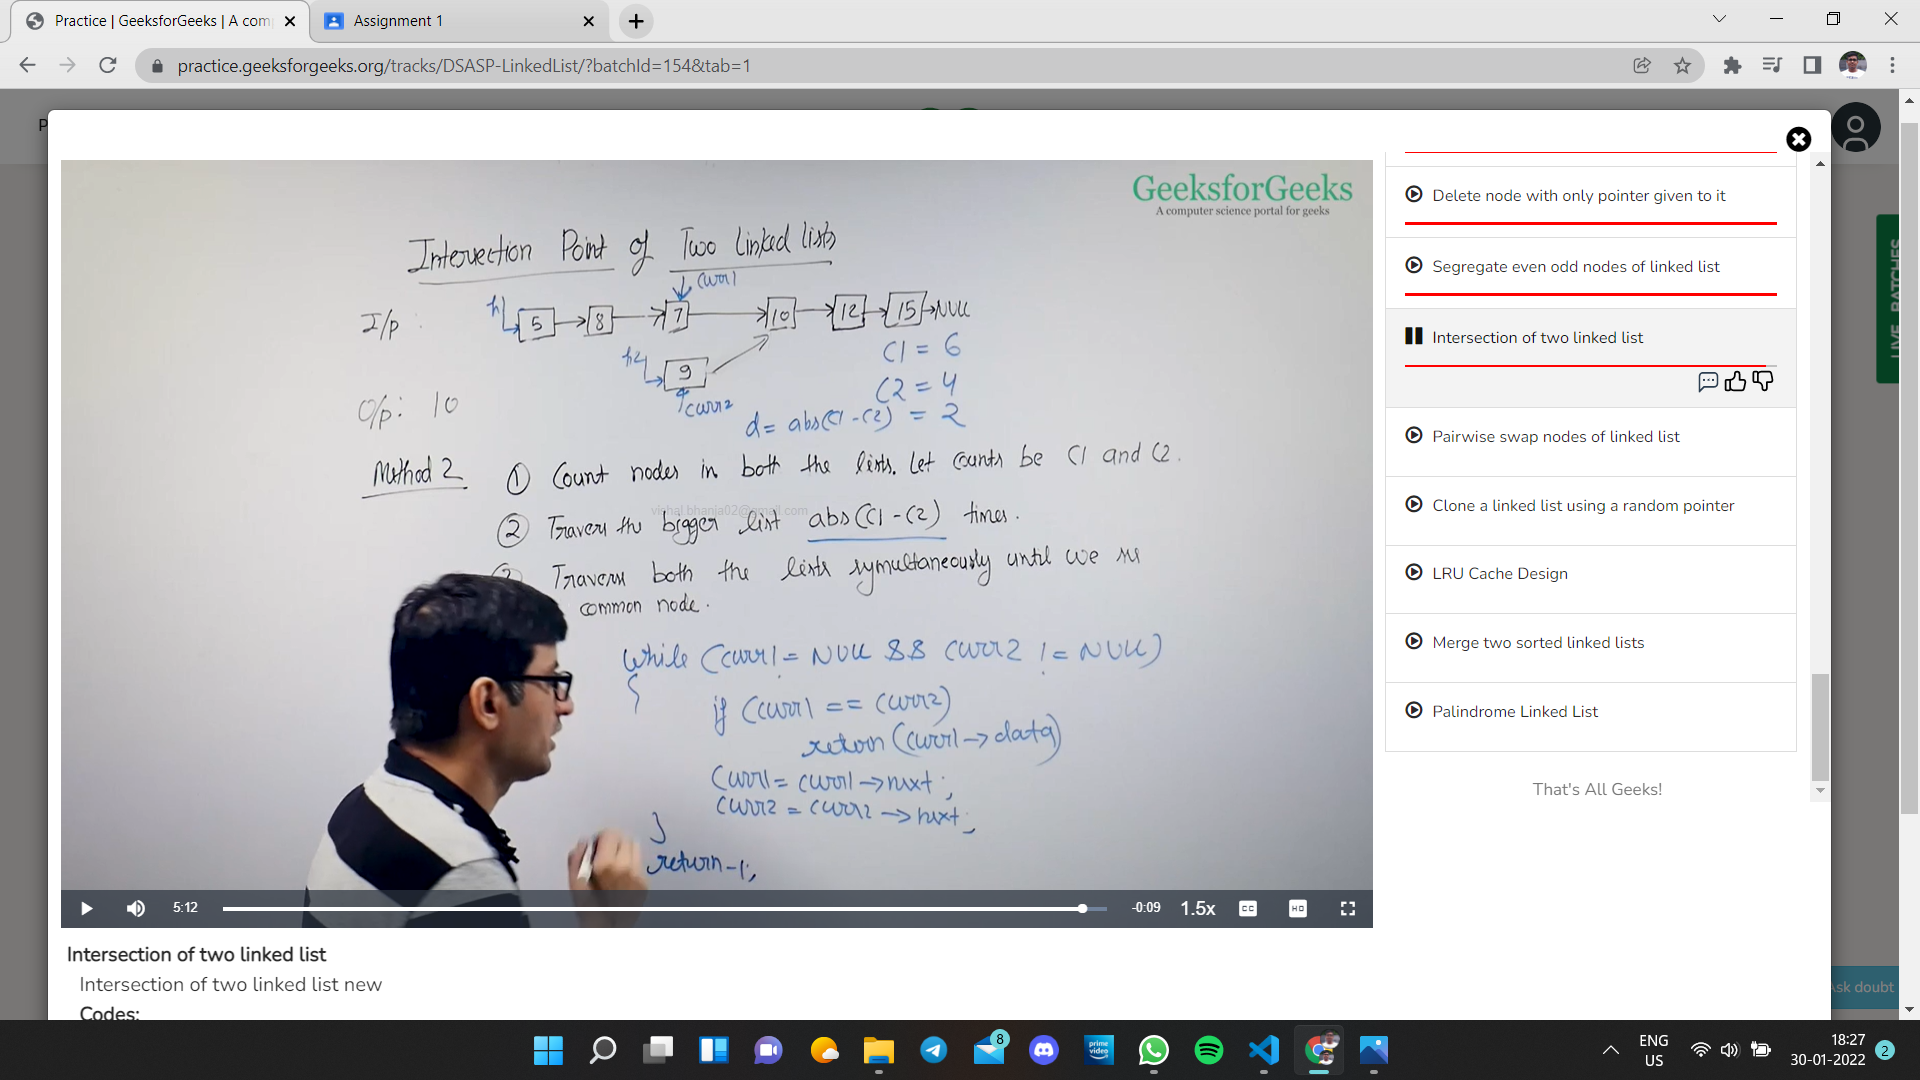 Practice | GeeksforGeeks | A com
Assignment 1
practice.geeksforgeeks.org/tracks/DSASP-LinkedList/?batchId=154&tab=1
P
GeeksforGeeks
A computer science portal for geeks
Intersection Point of Two linked lists
curr1
I/p :
h1
5 8 7 10 12 15 NULL
h2
9
curr2
C1 = 6
C2 = 4
d = abs(C1 - C2) = 2
O/p: 10
Method 2
① Count nodes in both the lists. Let counts be C1 and C2.
vishal.bhanja02@gmail.com
② Traverse the bigger list abs(C1 - C2) times.
Traverse both the lists symultaneously until we see
common node.
while (curr1 != NULL && curr2 != NULL)
{
if (curr1 == curr2)
return (curr1 → data)
curr1 = curr1 → next;
curr2 = curr2 → next;
}
return -1;
5:12
-0:09
1.5x
CC
HD
Delete node with only pointer given to it
Segregate even odd nodes of linked list
Intersection of two linked list
Pairwise swap nodes of linked list
Clone a linked list using a random pointer
LRU Cache Design
Merge two sorted linked lists
Palindrome Linked List
That's All Geeks!
LIVE BATCHES
Ask doubt
Intersection of two linked list
Intersection of two linked list new
Codes:
8
prime video
ENG
US
18:27
30-01-2022
2